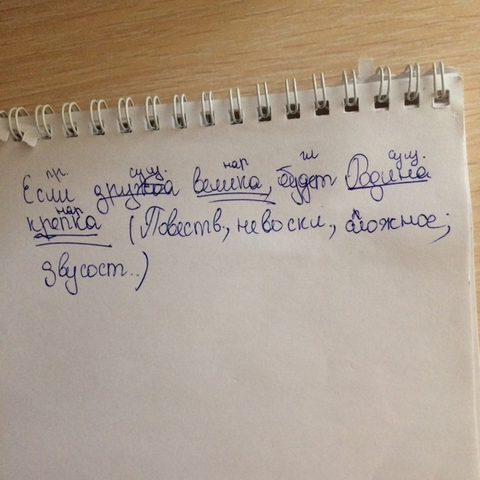 пр. сущ. нар гл сущ.
Если дружба велика, будет Родина
нар
крепка (Повеств, невоскл, сложное;
двусост..)